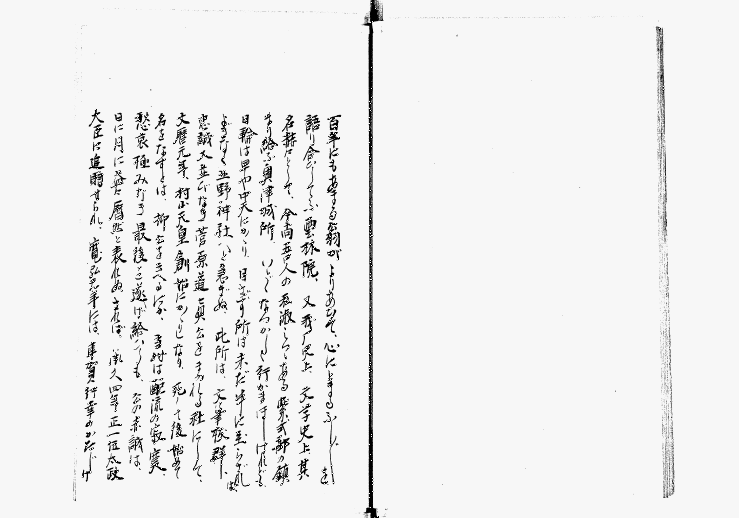 百年にもあまる翁がよりあひて、心にとまるふし〴〵を
語り合ひしてふ雲林院、又歴史上、文学史上、其
名赫々として、今尚吾人の私淑しつゝある紫式部の鎮
まり給ふ奥津城所、いとゞなつかしき行かまほしけれども
日輪は早や中天にかゝり、目ざす所は未だ半に至らざれば、
よぎなく北野神社へと急ぎぬ、此所は、文筆秀群、
忠誠又並びなき菅原道真公をまつれる社にして、
天暦元年、村山天皇創始にかゝりしなり、死して後始めて
名をなすとは、抑公をさへるにか、当時は配流の寂寞、
愁哀極みなき最後を遂げ給ひしも、公の赤誠は、
日に月に益々歴然と表れぬ、されば、永久四年正一位太政
大臣に追贈せられ、寛弘元年には、車賀行幸のかたじけ